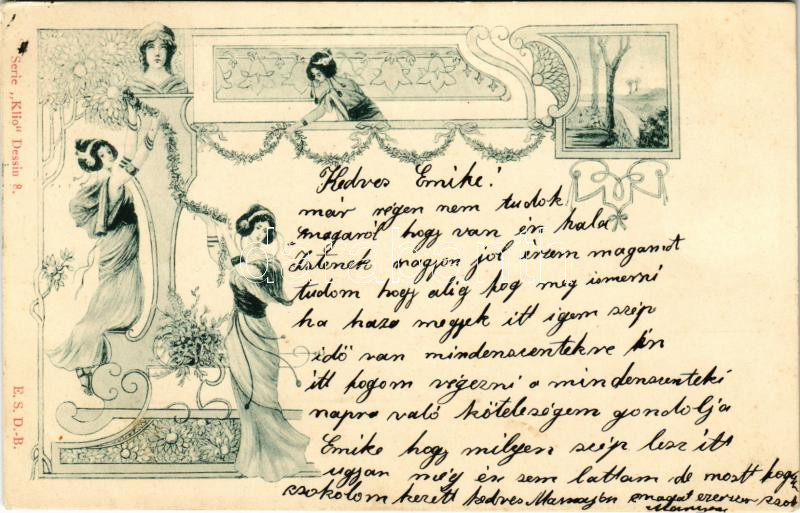 Serie „Klio" Dessin 8.
E. S. D.-B.
Kedves Emike!
már régen nem tudok
magaról hogy van én hala
Istenek nagyon jól érzem magamat
tudom hogy alig fog meg ismerni
ha haza megyek itt igen szép
idő van mindenscentekre én
itt fogom végezni a mindenszenteki
napra való kötelességem gondolja
Emike hogy milyen szép lesz itt
ugyan még én sem lattam de mostt fog
csokolom kezett kedves Mamajon magat ezerszer